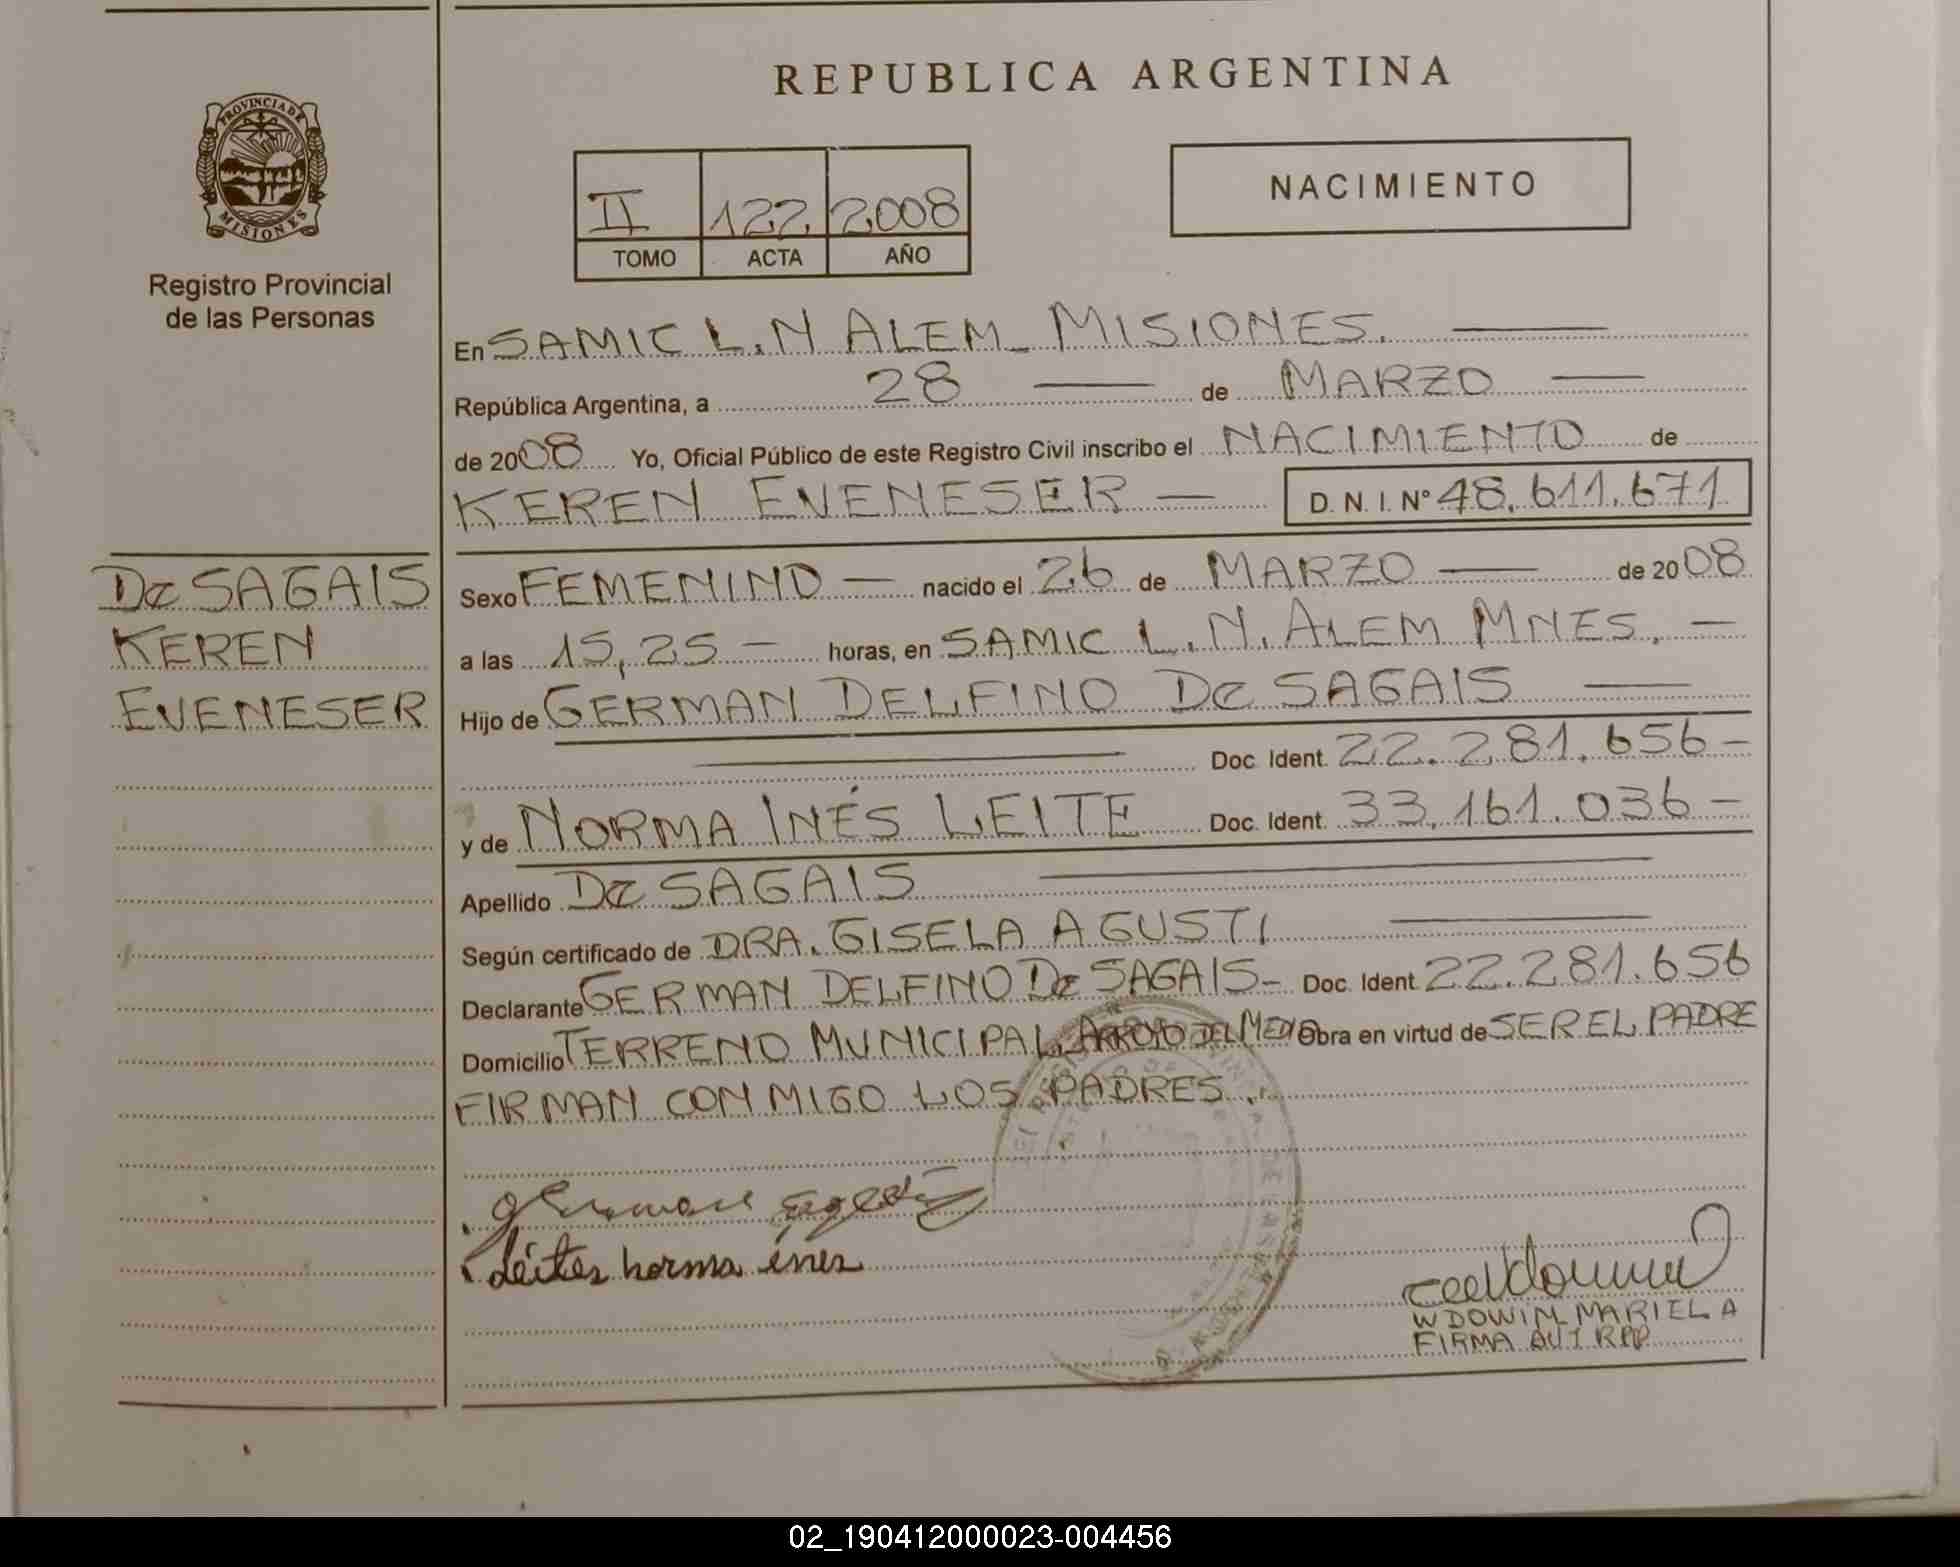 REPUBLICA ARGENTINA
PROVINCIA DE
MISIONES
Registro Provincial
de las Personas
II 122 2008
TOMO ACTA AÑO
NACIMIENTO
En SAMIC L.N ALEM_ MISIONES.
República Argentina, a 28 de MARZO
de 2008 Yo, Oficial Público de este Registro Civil inscribo el NACIMIENTO de
KEREN EVENESER — D. N. I. N° 48.611.671
De SAGAIS
KEREN
EVENESER
Sexo FEMENINO — nacido el 26 de MARZO — de 2008
a las 15,25 — horas, en SAMIC L.N. ALEM MNES. —
Hijo de GERMAN DELFINO De SAGAIS —
Doc. Ident. 22.281.656 –
y de NORMA INÉS LEITE Doc. Ident. 33.161.036 –
Apellido De SAGAIS
Según certificado de DRA. GISELA AGUSTI
Declarante GERMAN DELFINO De SAGAIS– Doc. Ident 22.281.656
Domicilio TERRENO MUNICIPAL ARROYO DEL MEDIO Obra en virtud de SER EL PADRE
FIRMAN CONMIGO LOS PADRES.
norma ines
WDOWIN MARIELA
FIRMA AUT RPP
02_190412000023-004456